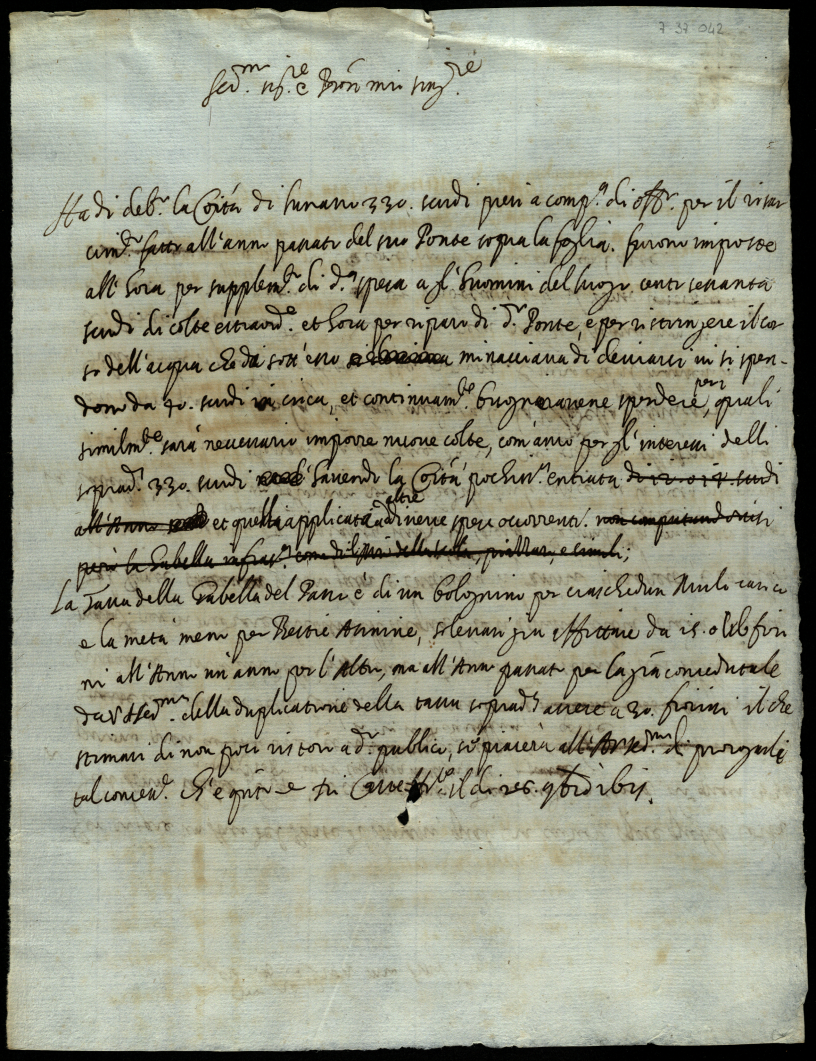 7 37 042
Ser.mo sig.re e Pron mio sing.re
Ha di deb.o la Co͞ità di lunano 330. scudi presi a comp.a di off.o per il risar
cim.to fatto all'anno passato del suo Ponte sopra la foglia. furono imposte
all'hora per supplem.to di d.a spesa a gl'huomini del luogo cento sessanta
scudi di colte estraord.e et hora per riparo di d.o Ponte, e per ristringere il cor
so dell'acqua che da sott'esso minacciava di deviarsi vi si spen-
dono da 40. scudi in circa, et continuam.te bisognaranne spendere, per i quali
similm.te sarà necessario imporre nuove colte, com'anco per gl'interessi delli
soprad.i 330. scudi havendo la Co͞ità pochiss.a entrata di scudi
all'Anno et quella applicata ad altre diverse spese occorrenti. non computandovisi
però la Gabella infras.a come di della, e simili;
La Tassa della Gabella del Passo è di un bolognino per ciaschedun Mulo carico
e la metà meno per Bestie Asinine, solevasi già affittare da 15. o 16 fiori
ni all'Anno un'anno per l'Altro, ma all'Anno passato per la gra͞ concedutale
da V A ser.ma della duplicatione della tassa soprad.a arrecò 30. fiorini il che
stimasi di non poco ristoro a d.o publico, se piacerà all'A ser.ma di prorogarle
tal conces.e Ch'è q͞nto e di il di 26.